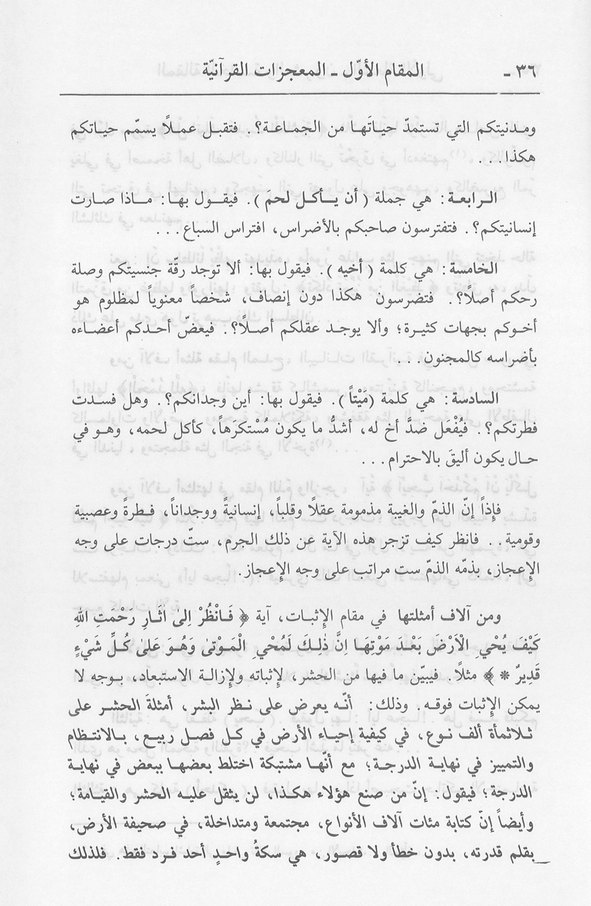 ٣٦ - المقام الأوّل ـ المعجزات القرآنيّة
ومدنيتكم التي تستمدّ حياتَها من الجماعة؟. فتقبل عملًا يسمّم حياتكم
هكذا...
الرابعة: هي جملة (أن يأكل لحمَ). فيقول بها: ماذا صارت
إنسانيتكم؟. فتفترسون صاحبكم بالأضراس، افتراس السباع...
الخامسة: هي كلمة (أخيه). فيقول بها: ألا توجد رقّة جنسيتكم وصلة
رحمكم أصلًا؟. فتضرسون هكذا دون إنصاف، شخصاً معنوياً لمظلوم هو
أخوكم بجهات كثيرة؛ وألا يوجد عقلكم أصلًا؟. فيعضّ أحدكم أعضاءه
بأضراسه كالمجنون...
السادسة: هي كلمة (مَيْتاً). فيقول بها: أين وجدانكم؟. وهل فسدت
فطرتكم؟. فيُفْعَل ضدَّ أخ له، أشدُّ ما يكون مُسْتكرَهاً، كأكل لحمه، وهو في
حال يكون أليقَ بالاحترام...
فإِذاً إنّ الذمّ والغيبة مذمومة عقلًا وقلباً، إنسانيةً ووجداناً، فطرةً وعصبية
وقومية.. فانظر كيف تزجر هذه الآية عن ذلك الجرم، ستّ درجات على وجه
الإعجاز، بذمّه الذمّ ست مراتب على وجه الإعجاز.
ومن آلاف أمثلتها في مقام الإثبات، آية ﴿ فَانْظُرْ اِلىٰ اٰثَارِ رَحْمَتِ اللهِ
كَيْفَ يُحْيِ الْاَرْضَ بَعْدَ مَوْتِهَا اِنَّ ذٰلِكَ لَمُحْيِ الْمَوْتىٰ وَهُوَ عَلىٰ كُلِّ شَيْءٍ
قَدِيرٌ * ﴾ مثلًا. فيبيّن ما فيها من الحشر، لإثباته ولإزالة الاستبعاد، بوجه لا
يمكن الإثبات فوقه. وذلك: أنّه يعرض على نظر البشر، أمثلةَ الحشر على
ثلاثمأة ألف نوع، في كيفية إحياء الأرض في كل فصل ربيع، بالانتظام
والتمييز في نهاية الدرجة؛ مع أنّها مشتبكة اختلط بعضها ببعض في نهاية
الدرجة؛ فيقول: إنّ من صنع هؤلاء هكذا، لن يثقل عليه الحشر والقيامة؛
وأيضاً إنّ كتابة مئات آلاف الأنواع، مجتمعة ومتداخلة، في صحيفة الأرض،
بقلم قدرته، بدون خطأ ولا قصور، هي سكةُ واحدٍ أحد فرد فقط. فلذلك